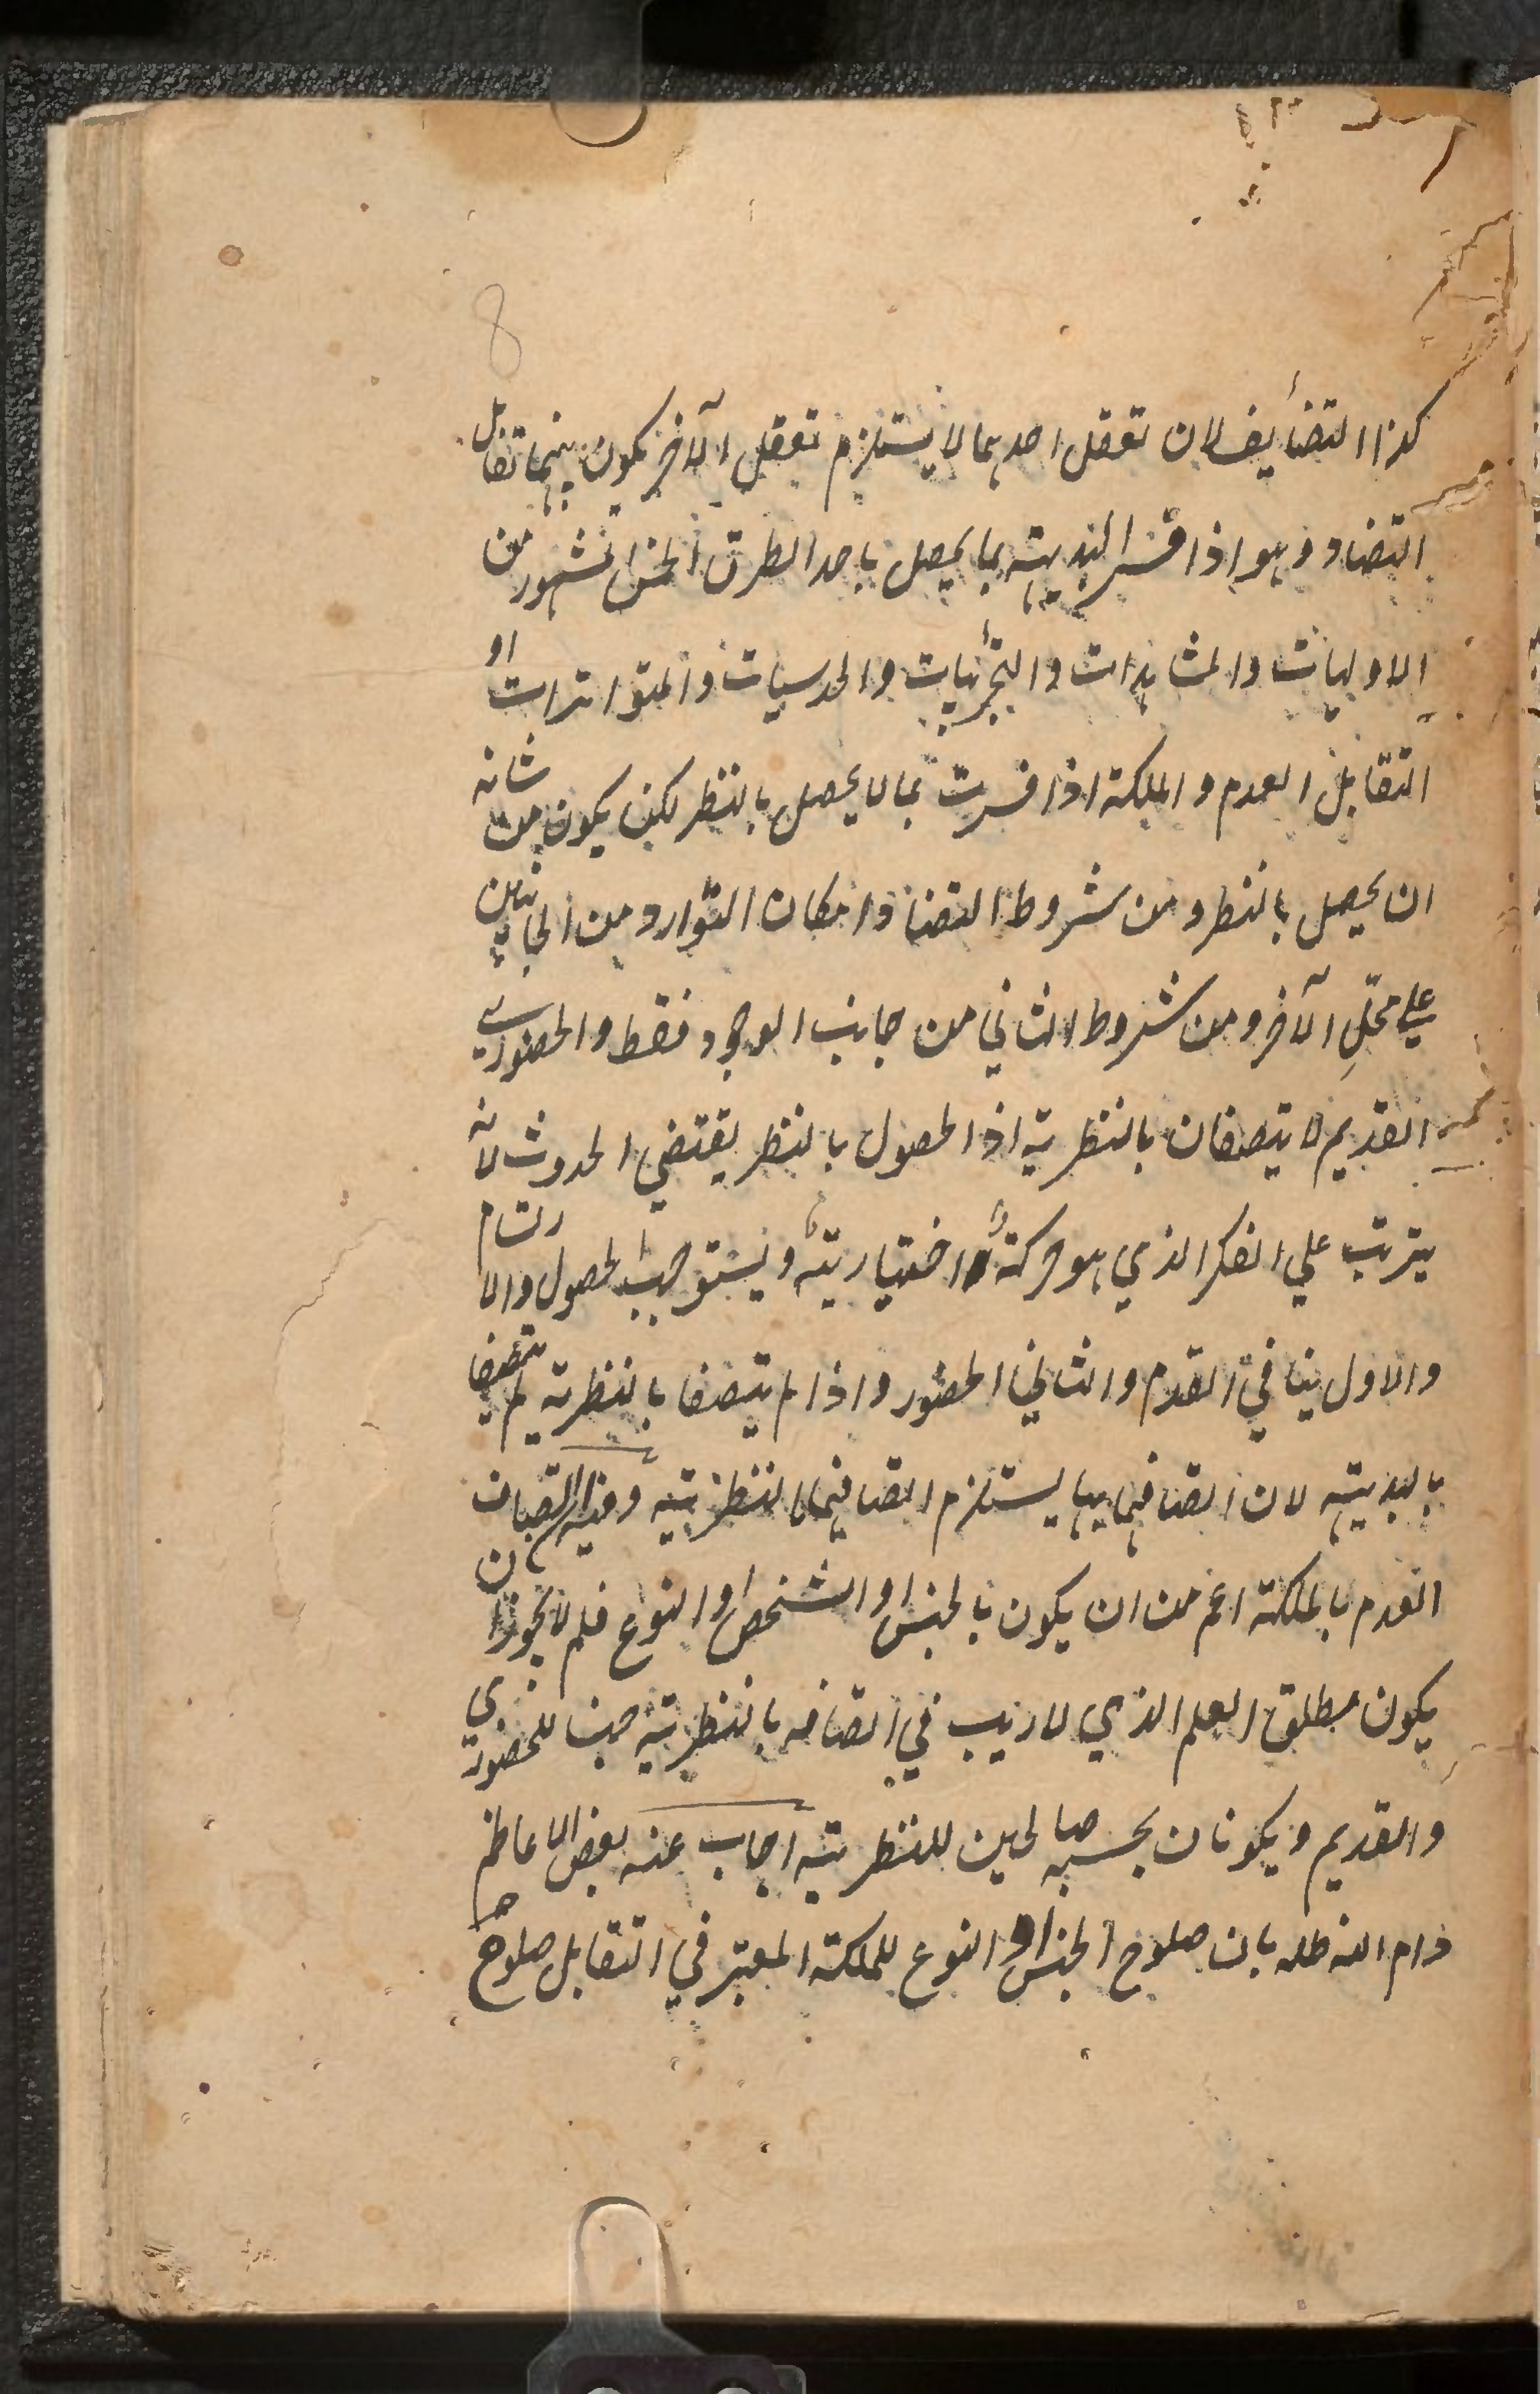 8
كذا التضايف لان تعقل احدهما لا يستلزم تعقل الآخر يكون بينهما تقابل
التضاد وهو اذا فسر البديهية بما يحصل باحد الطرق الخمس المشهور من
الاوليات والمشاهدات والتجربيات والحدسيات والمتواترات او
التقابل العدم والملكة اذا فسرت بما لا يحصل بالنظر لكن يكون من شانه
ان يحصل بالنظر ومن شروط التضاد امكان التوارد من الجانبين
على محل الآخر ومن شروط الثاني من جانب الوجود فقط والحضوري
القديم لا يتصفان بالنظرية اذ الحصول بالنظر يقتضي الحدوث لانه
يترتب على الفكر الذي هو حركة اختيارية ويستوجب الحصول والارتسام
والاول ينافي القدم والثاني الحضور واذا لم يتصفا بالنظرية لم يتصفا
بالبديهية لان اتصافهما بها يستلزم اتصافهما بالنظرية وفيه ان اتصاف
العدم بالملكة اعم من ان يكون بالجنس او الشخص او النوع فلم لا يجوز ان
يكون مطلق العلم الذي لا ريب في اتصافه بالنظرية جنسا للحضوري
والقديم ويكونان بحسبه صالحين للنظرية اجاب عنه بعض الاعاظم
دام الله ظله بان صلوح الجنس او النوع للملكة المعتبر في التقابل صلوح